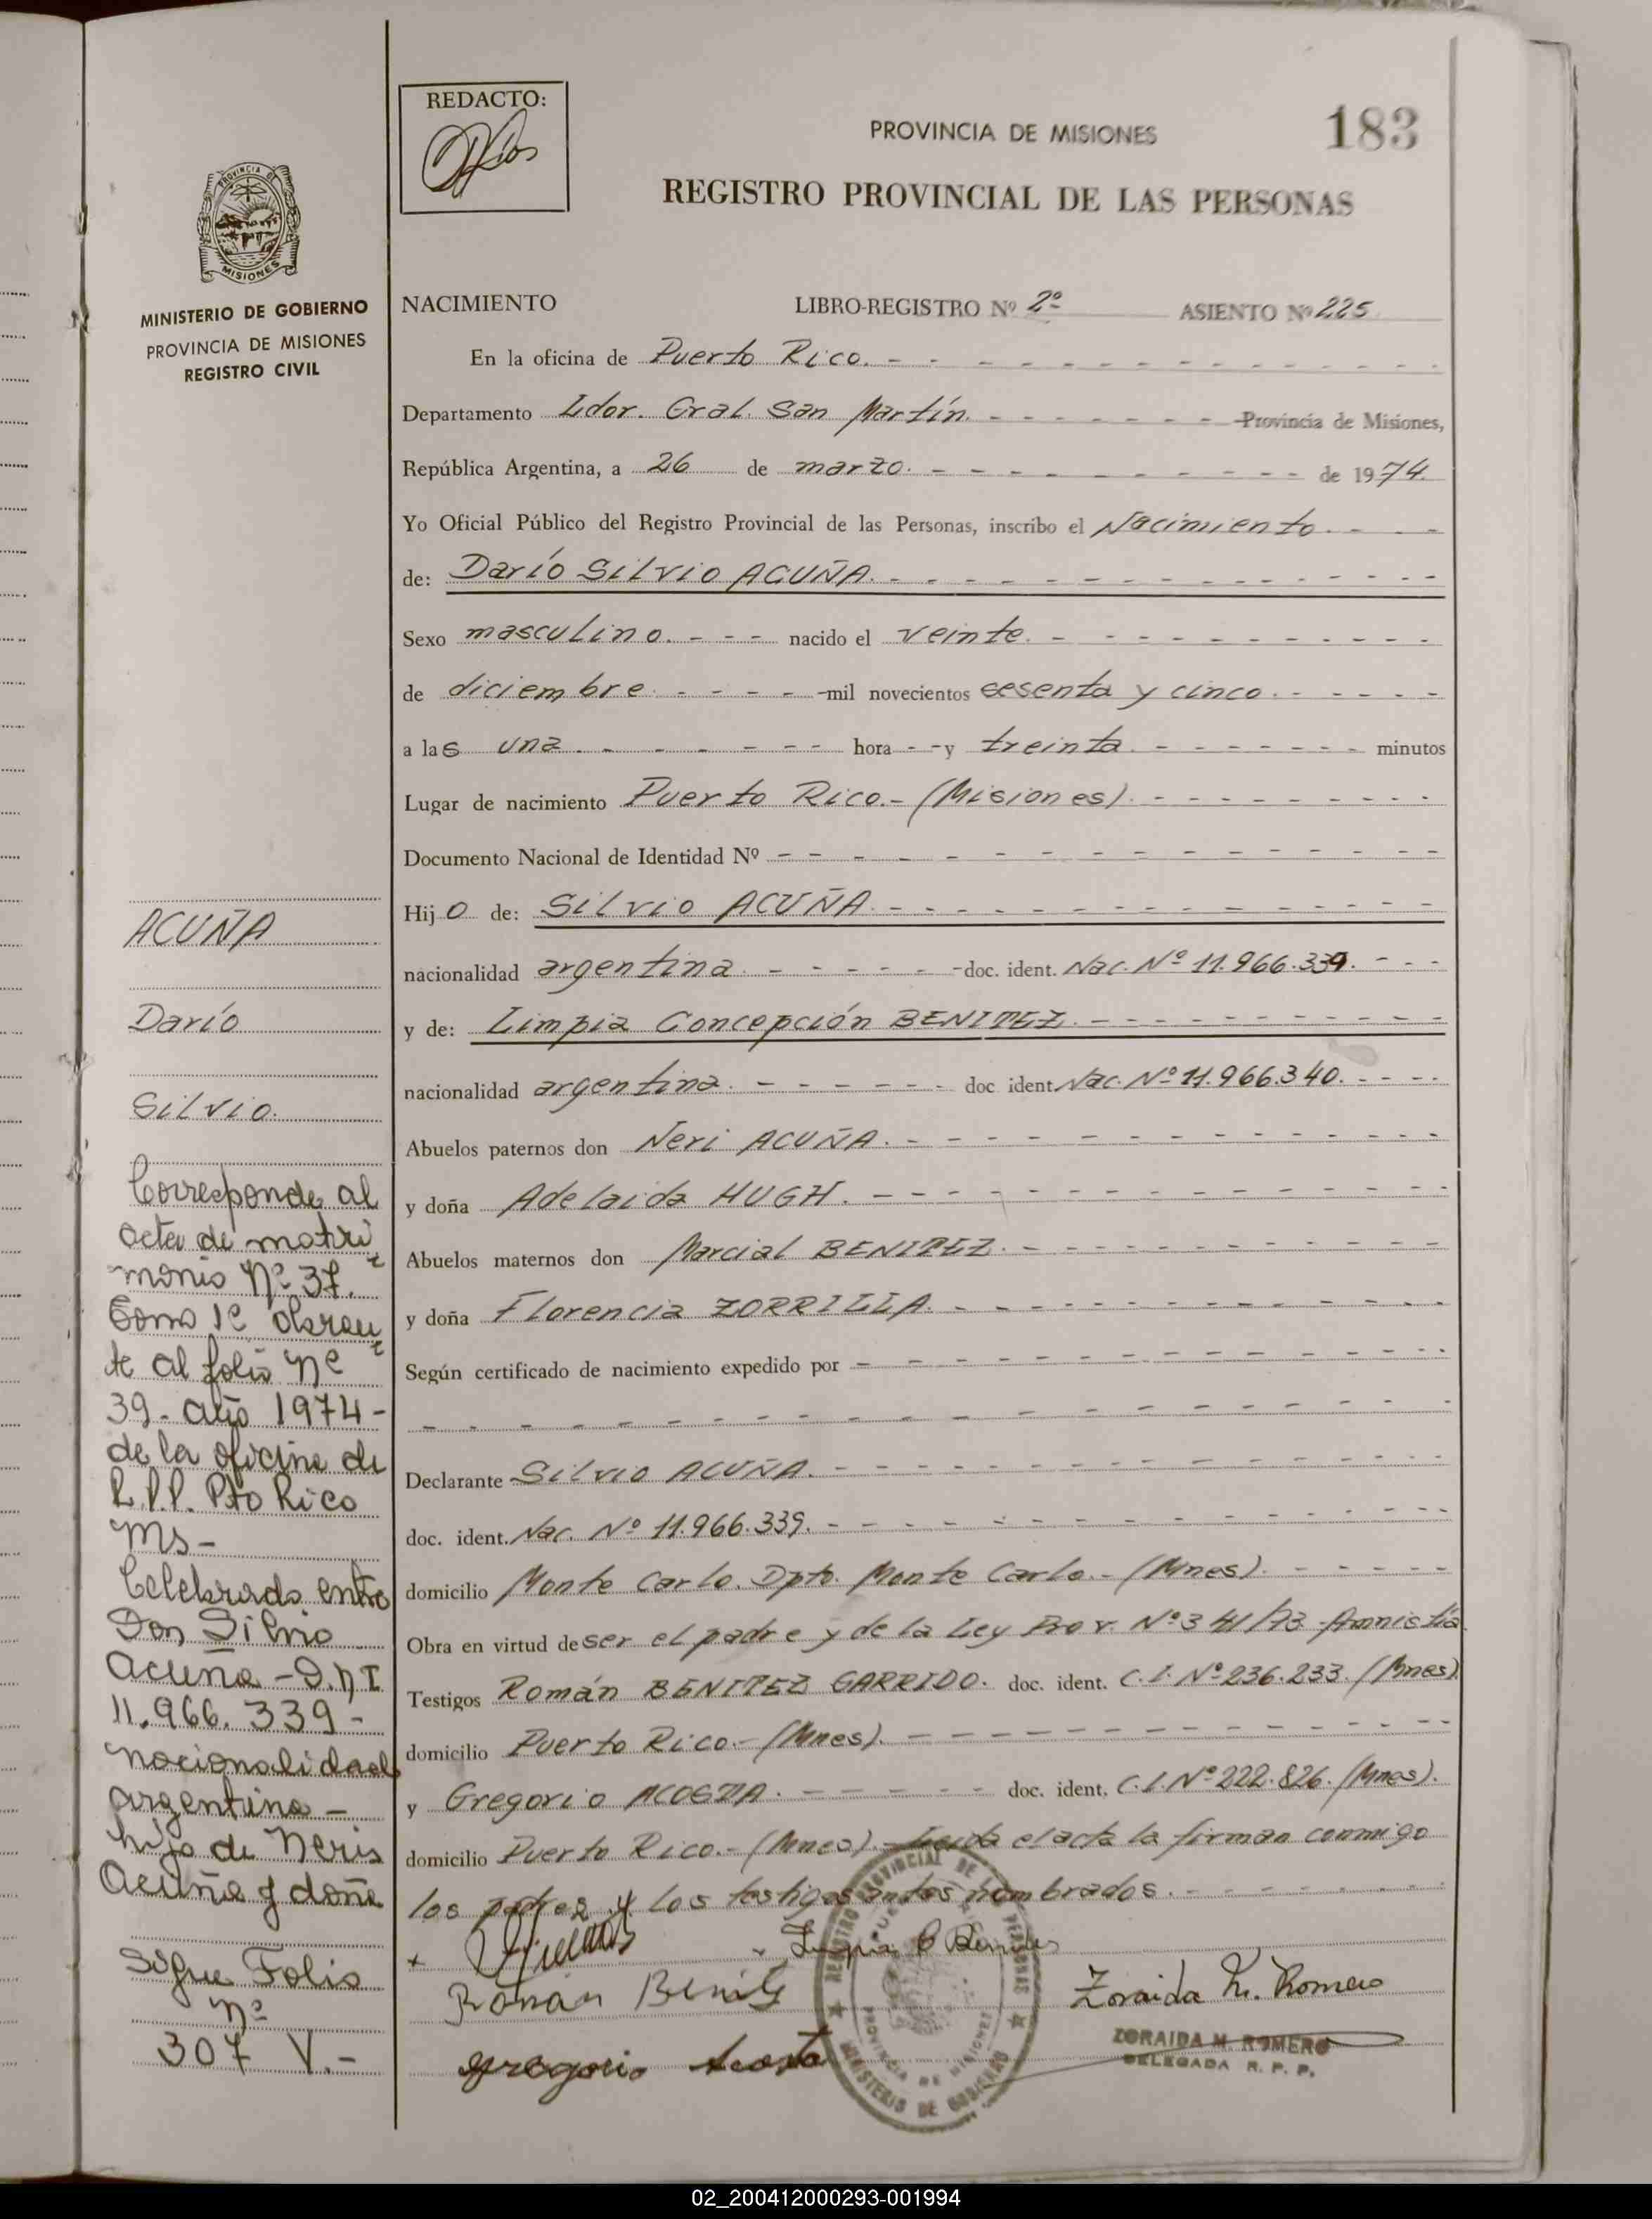 REDACTO:
PROVINCIA DE MISIONES
183
REGISTRO PROVINCIAL DE LAS PERSONAS
PROVINCIA DE
MISIONES
MINISTERIO DE GOBIERNO
PROVINCIA DE MISIONES
REGISTRO CIVIL
NACIMIENTO LIBRO-REGISTRO Nº 2º ASIENTO Nº 225
En la oficina de Puerto Rico. - - - - - - - - - - - - -
Departamento Ldor. Gral. San Martín. - - - - - - - Provincia de Misiones,
República Argentina, a 26 de marzo. - - - - - - - - - - de 1974.
Yo Oficial Público del Registro Provincial de las Personas, inscribo el Nacimiento. - -
de: Darío Silvio ACUÑA. - - - - - - - - - - - - - -
Sexo masculino. - - - nacido el veinte. - - - - - - - - -
de diciembre - - - - -mil novecientos sesenta y cinco. - - - -
a las una. - - - - - - - hora - - y treinta. - - - - - - - minutos
Lugar de nacimiento Puerto Rico.- (Misiones). - - - - - - - -
Documento Nacional de Identidad Nº - - - - - - - - - - - -
Hijo de: Silvio ACUÑA. - - - - - - - - - - - -
nacionalidad argentina. - - - - - -doc. ident. Nac. Nº 11.966.339. - - -
y de: Limpia Concepción BENITEZ. - - - - - - - - - -
nacionalidad argentina. - - - - - - doc ident. Nac. Nº 11.966.340. - - - -
Abuelos paternos don Neri ACUÑA. - - - - - - - - - - -
y doña Adelaida HUGH. - - - - - - - - - - - -
Abuelos maternos don Marcial BENITEZ. - - - - - - - - -
y doña Florencia ZORRILLA. - - - - - - - - - - -
Según certificado de nacimiento expedido por - - - - - - - - - - -
- - - - - - - - - - - - - - - - -
Declarante Silvio ACUÑA. - - - - - - - - - - - -
doc. ident. Nac. Nº 11.966.339. - - - - - - - - - - - -
domicilio Monte Carlo. Dpto. Monte Carlo.- (Mnes). - - - - -
Obra en virtud de ser el padre y de la Ley Prov. Nº 341/73 -Amnistía
Testigos Román BENITEZ GARRIDO. doc. ident. C.I. Nº 236.233. (Mnes).
domicilio Puerto Rico.- (Mnes). - - - - - - - - - - -
y Gregorio ACOSTA. - - - - - doc. ident. C.I. Nº 222.826. (Mnes).
domicilio Puerto Rico.- (Mnes).- Leída el acta la firman conmigo
los padres y los testigos antes nombrados. - - - - - - -
Limpia C Benitez
Román Benitez
Zoraida M. Romero
Gregorio Acosta
ZORAIDA M. ROMERO
DELEGADA R. P. P.
REGISTRO PROVINCIAL DE LAS PERSONAS
PROVINCIA DE MISIONES
MINISTERIO DE GOBIERNO
ACUÑA
Darío
Silvio.
Corresponde al
acta de matri
monio Nº 37.
Tomo 1º obran
te al folio Nº
39- año 1974-
de la oficina de
R.P.P. Pto Rico
Ms-
Celebrado entre
Don Silvio
Acuña - D.N.I
11.966.339-
nacionalidad
argentina -
hijo de Neris
Acuña y doña
Sigue Folio
nº
307 V.-
02_200412000293-001994